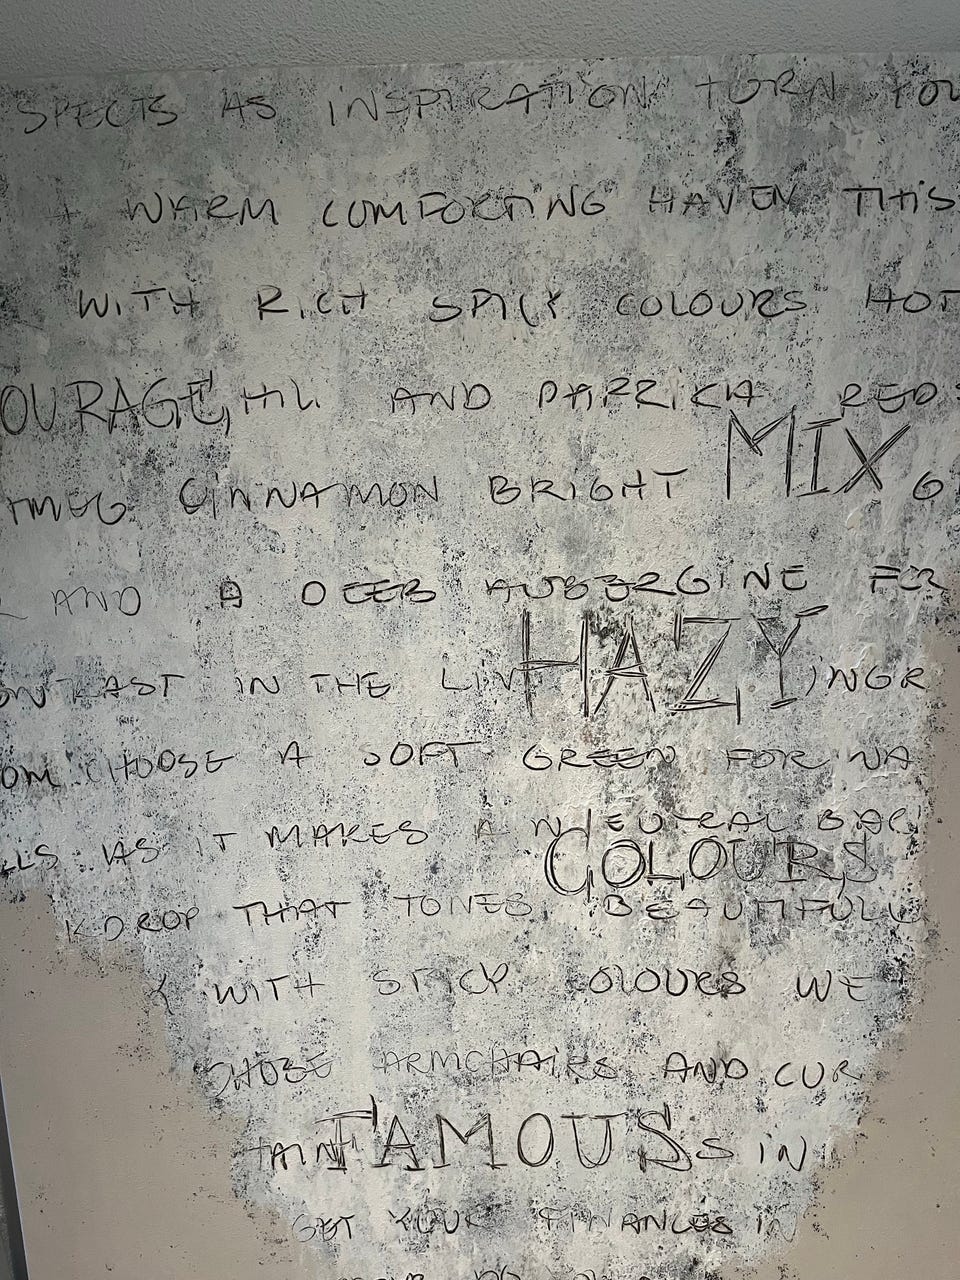 SPECTS AS INSPIRATION TURN YOU
WARM COMFORTING HAVEN THIS
WITH RICH SPICY COLOURS HOT
OURAGE HILI AND PAPRICA REDS
MIX
TMEG CINNAMON BRIGHT
AND A DEEB AUBERGINE FOR
HAZY
ONTRAST IN THE LIV INGR
OM CHOOSE A SOFT GREEN FOR NA
LLS AS IT MAKES A NEUTRAL BAC
COLOURS
KDROP THAT TONES BEAUTIFULL
Y WITH SPICY COLOURS WE
CHOSE ARMCHAIRS AND CUR
TAIN FAMOUS S IN
GET YOUR FINANCES IN